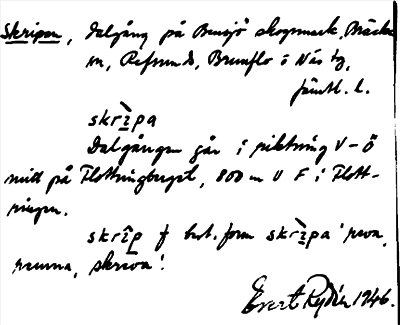 Skripen, dalgång på Bensjö skogsmark, Bräcke
sn, Refsunds, Brunflo o Näs tg,
Jämtl. l.
skrìpa
Dalgången går i riktning V-Ö
mitt på Flottningberget, 800 m V F i Flott-
ningen.
skrip f best. form skrìpa
Evert Rydén 1946.